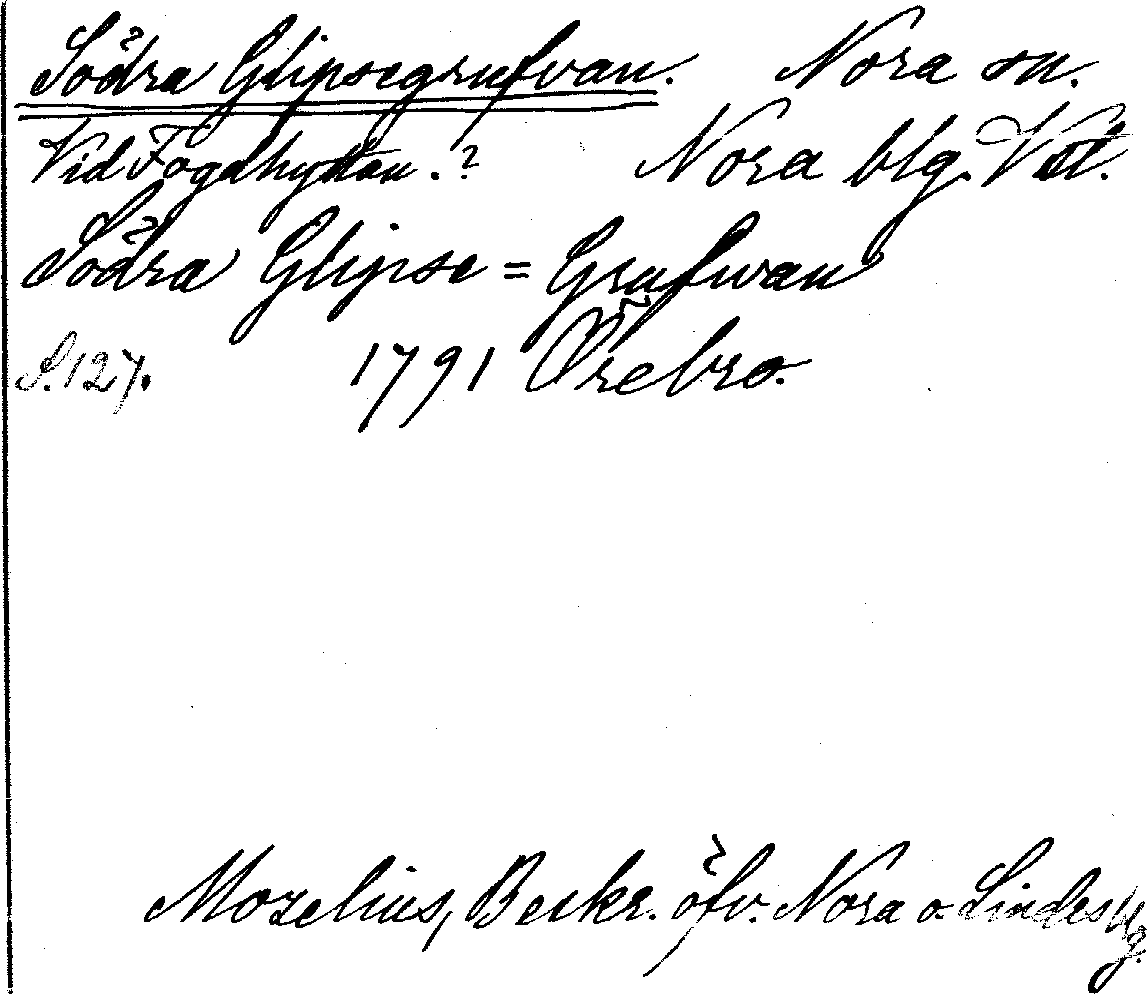 Södra Glipsegrufvan. Nora sn.
Vid Fogdhyttan.? Nora blg. Vstl.
Södra Glipse=Grufwan
S.127. 1791 Örebro.
Mozelius, Beskr. öfv. Nora o. Lindes blg.